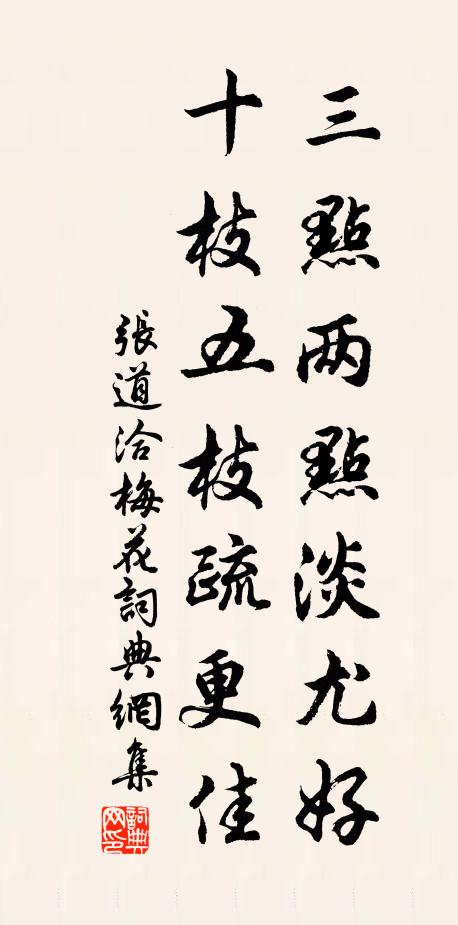 三點两點淡尤好
十枝五枝疏更佳
張道洽梅花詞典網集
詞典网印